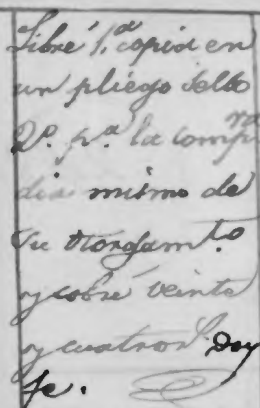 Libré 1.ª copia en
un pliego sello
2º. p.ª la comp.ra
dia mismo de
su otorgam.to
y cobré veinte
y cuatro r.s Doy
fe.